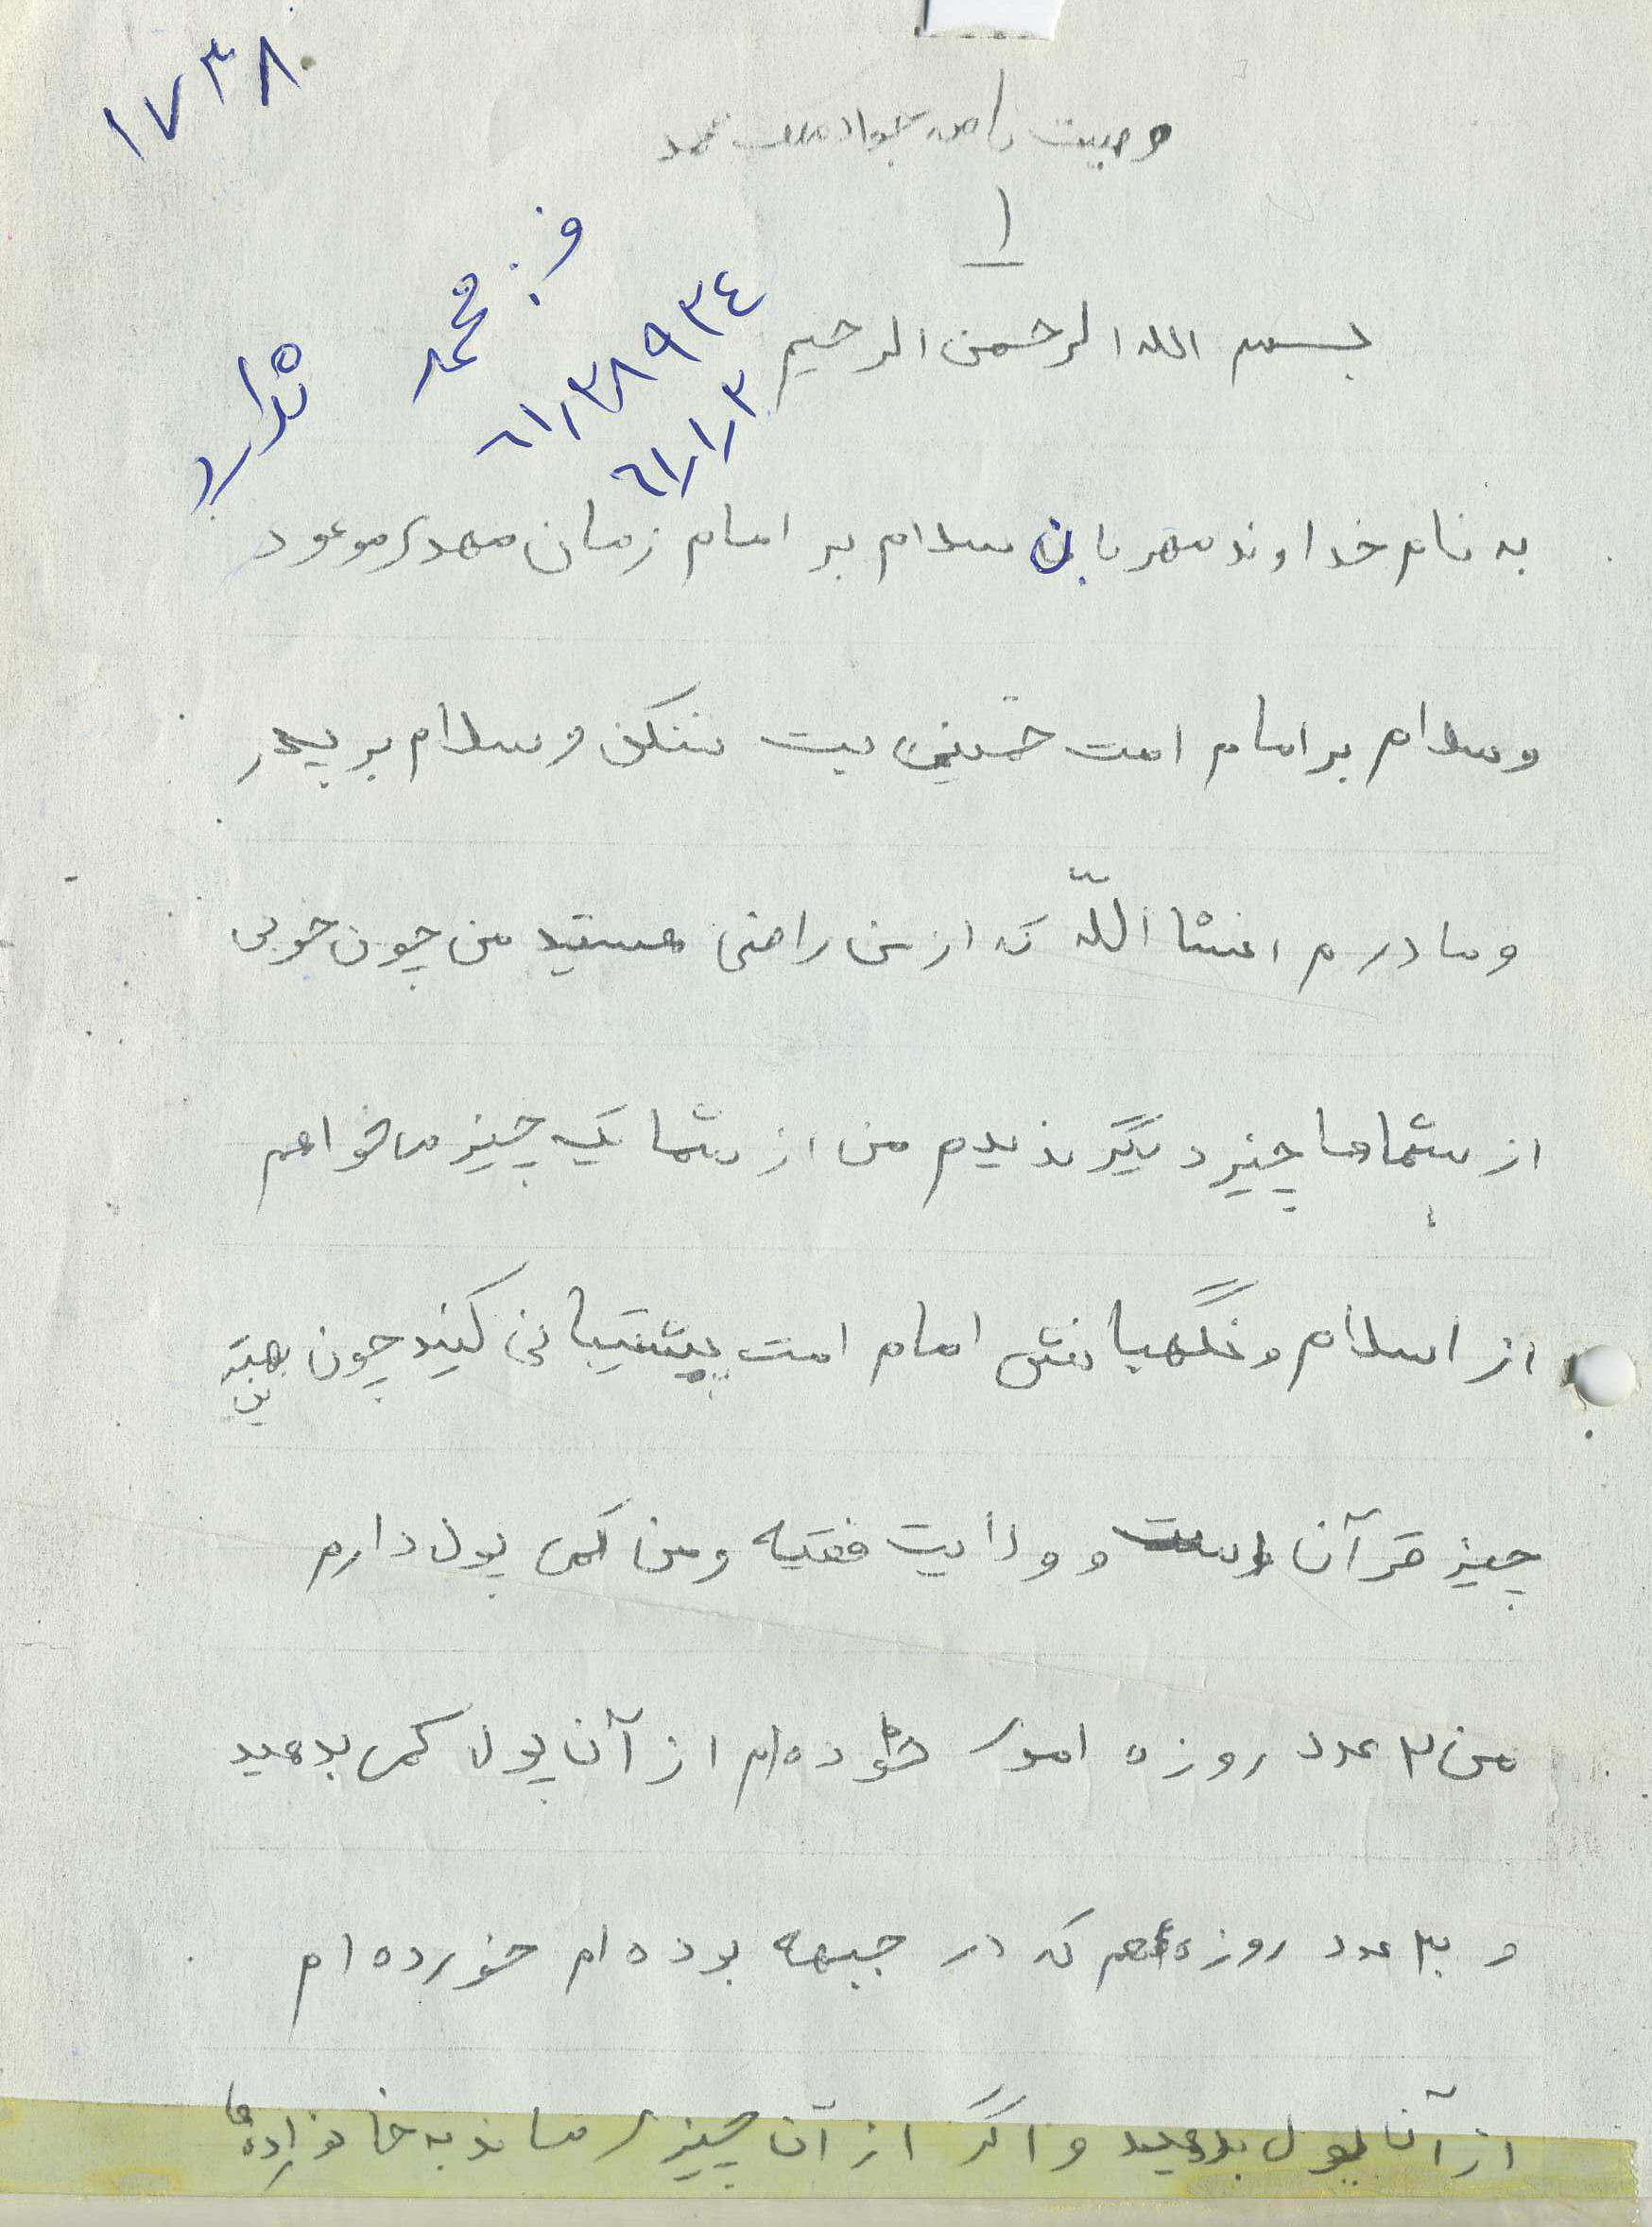 ۱۷۳۸
وصیت نامه جواد ملک محمد
۱
ف: محمد
ندارد
۶۱,۳۸۹۳٤
۶۱/۱/۳
بسم الله الرحمن الرحیم
به نام خداوند مهربان سلام بر امام زمان مهدی موعود
وسلام بر امام امت خمینی بت شکن و سلام بر پدر
ومادرم انشا اللّه که از من راضی هستید من چون خوبی
از شماها چیز دیگر ندیدم من از شما یک چیز می خواهم
از اسلام و نگهبانش امام امت پشتیبانی کنید چون بهترین
چیز قرآن است و ولایت فقیه ومن کمی پول دارم
من ۳ عدد روزه ام از آن پول کمی بدهید
و ۳۰ عدد روزه هم که در جبهه بوده ام خورده ام
از آن پول بدهید و اگر از آن چیزی ماند به خانواده ها